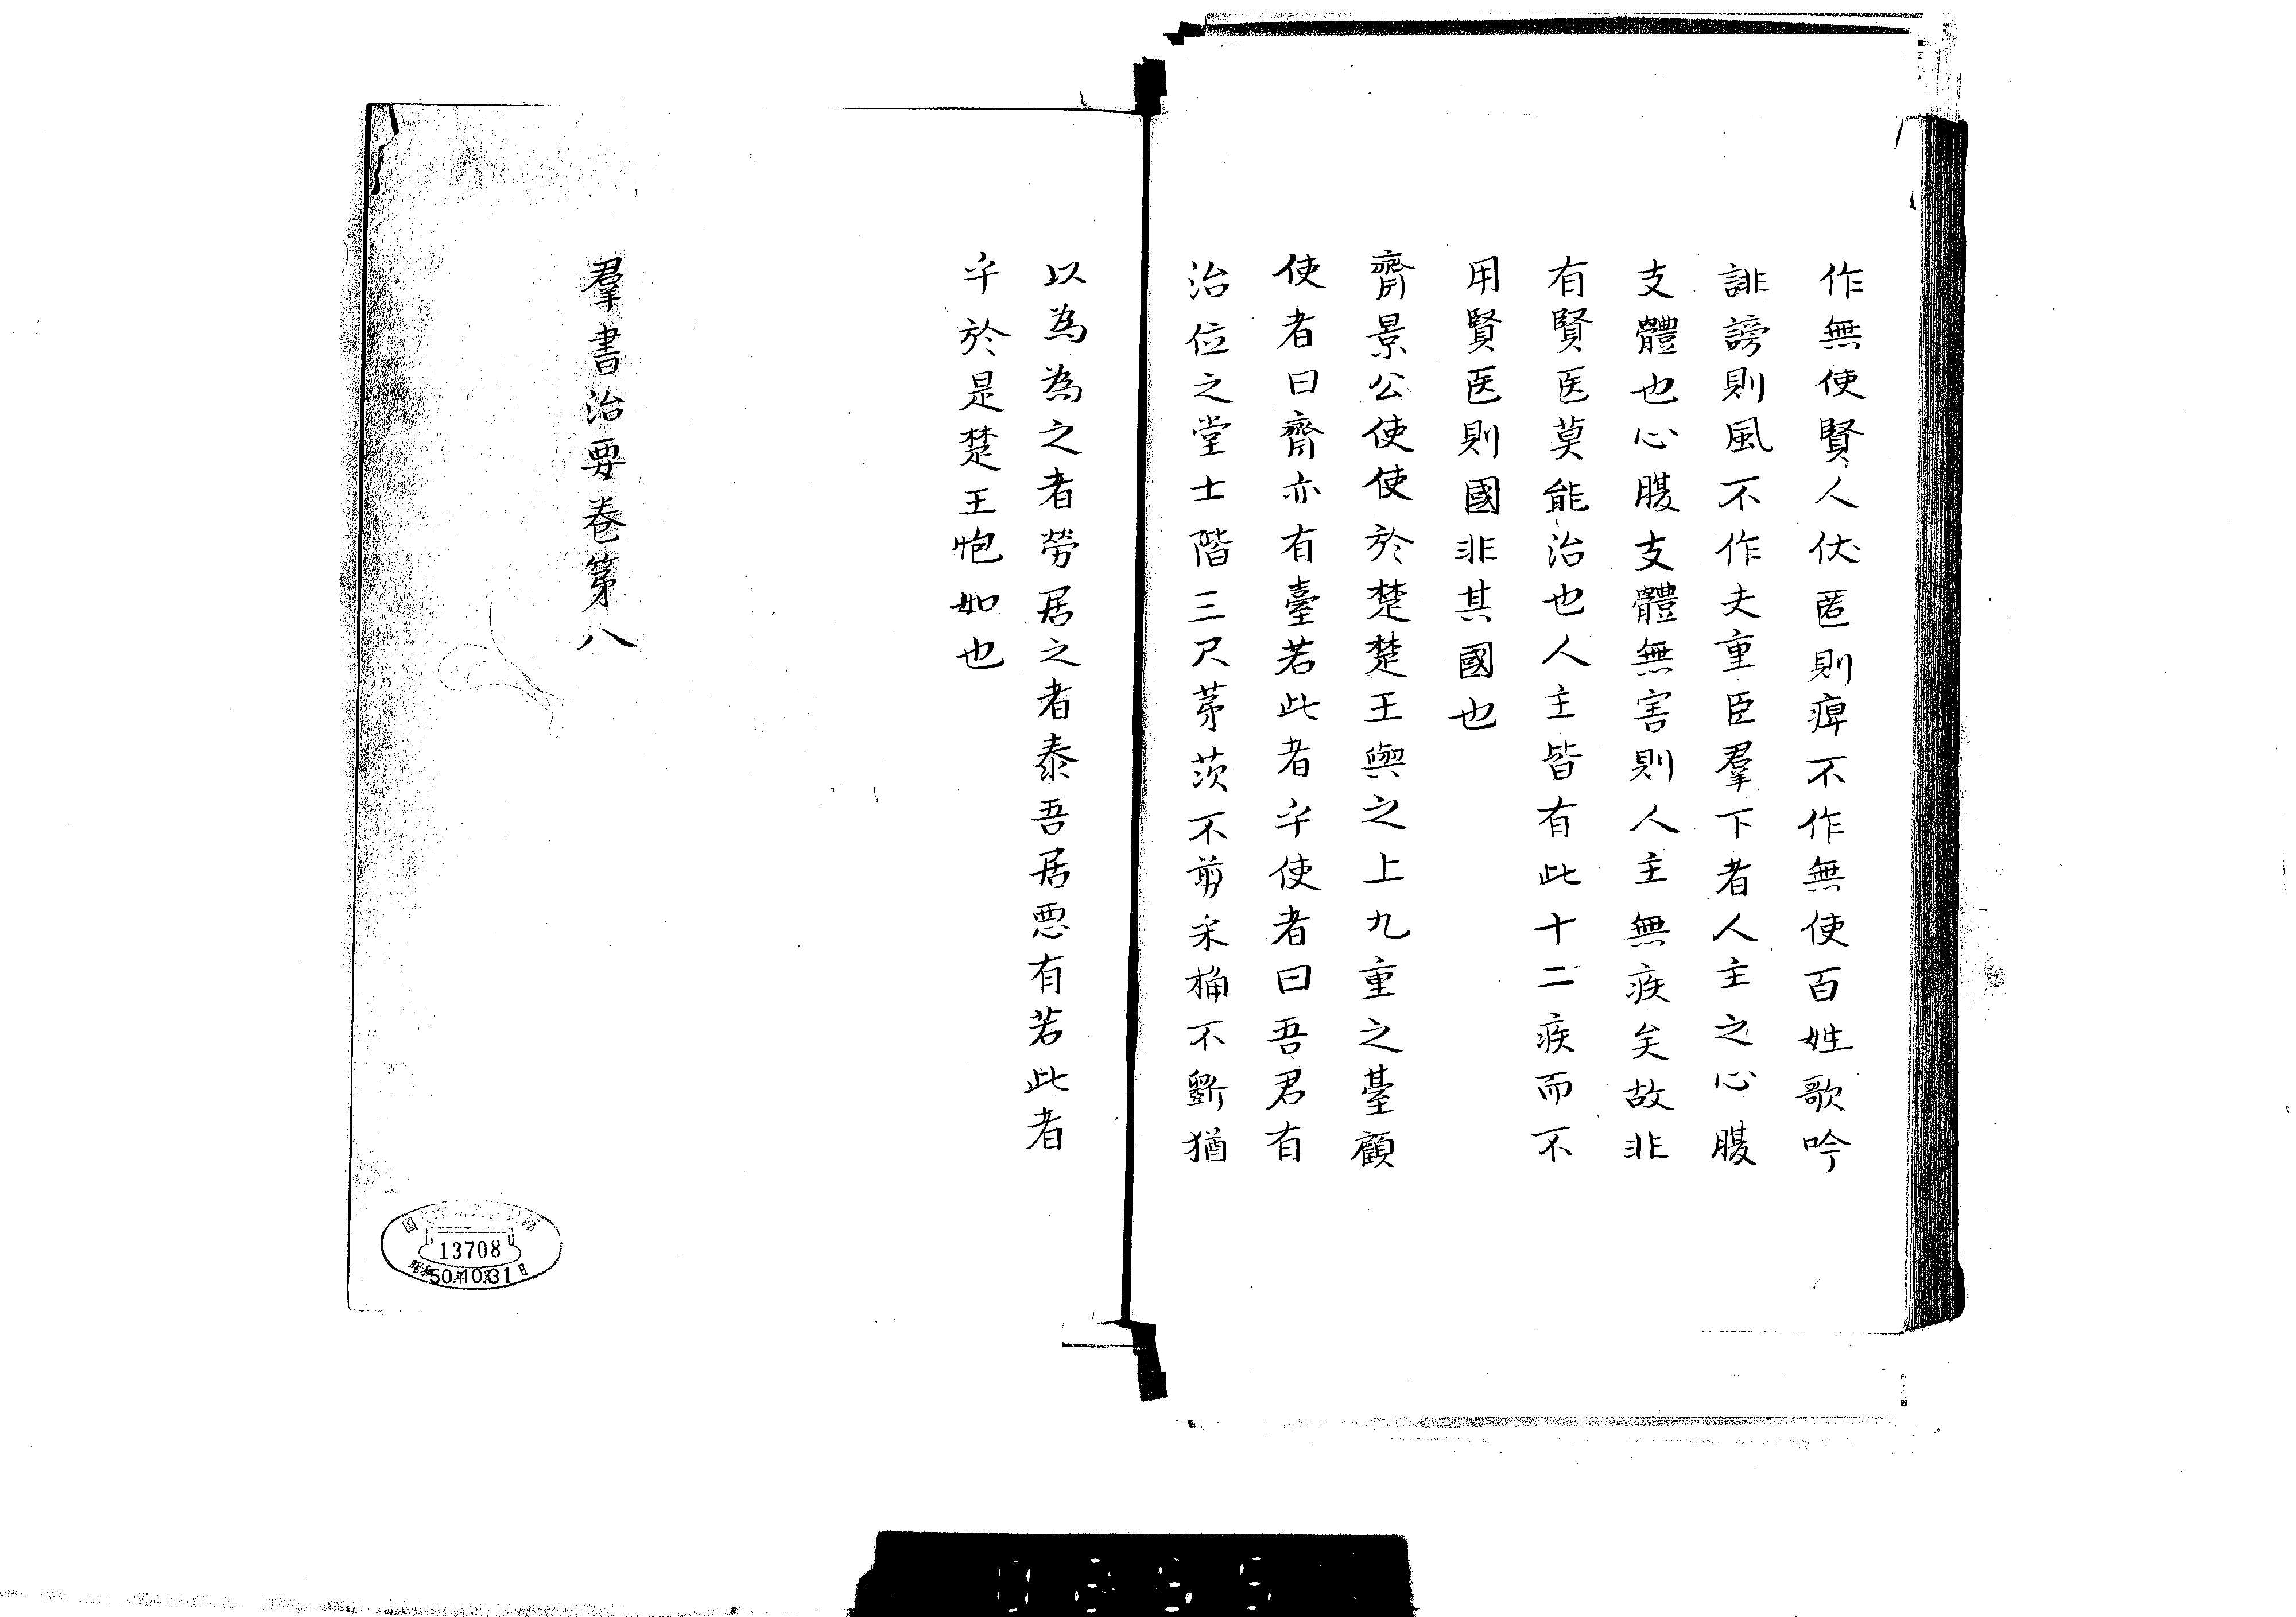 作無使賢人伏匿則痺不作無使百姓歌吟
誹謗則風不作夫重臣羣下者人主之心腹
支體也心腹支體無害則人主無疾矣故非
有賢医莫能治也人主皆有此十二疾而不
用賢医則國非其國也
齊景公使使於楚楚王與之上九重之臺顧
使者曰齊亦有臺若此者乎使者曰吾君有
治位之堂士階三尺茅茨不剪采桷不斲猶
以為為之者勞居之者泰吾居惡有若此者
乎於是楚王怉如也
羣書治要卷第八
13708
昭和50年10月31日